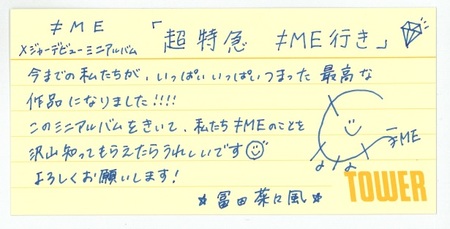 ≠ME
メジャーデビューミニアルバム「超特急 ≠ME行き」
今までの私たちが、いっぱいいっぱいつまった最高な
作品になりました!!!!
このミニアルバムをきいて、私たち≠MEのことを
沢山知ってもらえたらうれしいです
よろしくお願いします!
☆冨田菜々風☆
≠ME
TOWER